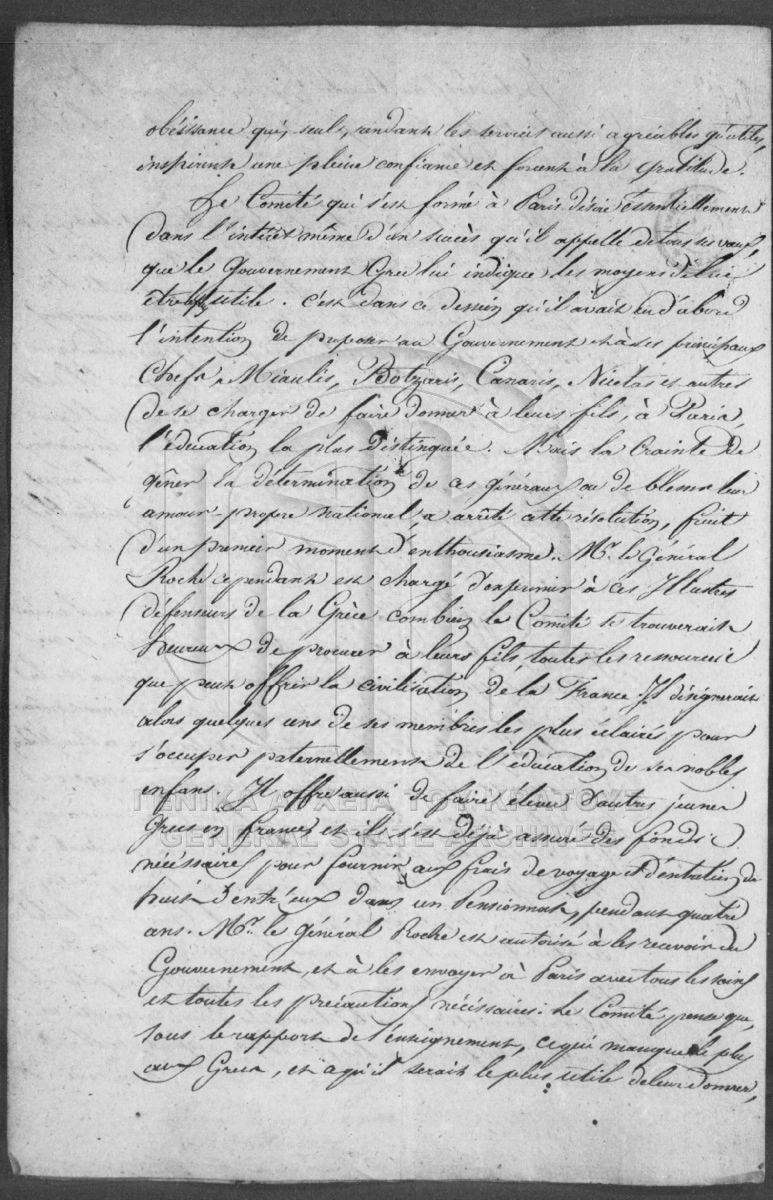 obéissance qui, seuls, rendant les services aussi agréables qu'utiles,
inspirent une pleine confiance et forcent à la Gratitude.
Le Comité qui s'est formé à Paris désire Essentiellement
dans l'intérêt même d'un succès qu'il appelle de tous ses vœux,
que le Gouvernement Grec lui indique les moyens de lui
être utile. C'est dans ce dessein qu'il avait eu d'abord
l'intention de proposer au Gouvernement et à ses principaux
Chefs, Miaulis, Botzaris, Canaris, Nicetas et autres
de se charger de faire donner à leurs fils, à Paris,
l'éducation la plus Distinguée. Mais la Crainte de
gêner la détermination de ces généraux ou de blesser leur
amour-propre national, a arrêté cette résolution, fruit
d'un premier moment d'enthousiasme. Mr. le Général
Roche cependant est chargé d'exprimer à ces Illustres
défenseurs de la Grèce combien le Comité se trouverait
heureux de procurer à leurs fils, toutes les ressources
que peut offrir la civilisation de la France. Il désignerait
alors quelques uns de ses membres les plus éclairés pour
s'occuper paternellement de l'éducation de ses nobles
enfans. Il offre aussi de faire élever d'autres jeunes
Grecs en France, et il s'est déjà assuré des fonds
nécessaires pour fournir aux frais de voyage et d'entretien de
huit d'entr'eux dans un Pensionnat, pendant quatre
ans. Mr. le Général Roche est autorisé à les recevoir du
Gouvernement, et à les envoyer à Paris avec tous les soins
et toutes les précautions nécessaires: Le Comité pense que,
sous le rapport de l'enseignement, ce qui manque le plus
aux Grecs, et a qu'il serait le plus utile de leur donner,
ΓΕΝΙΚΑ ΑΡΧΕΙΑ ΤΟΥ ΚΡΑΤΟΥΣ
GENERAL STATE ARCHIVES